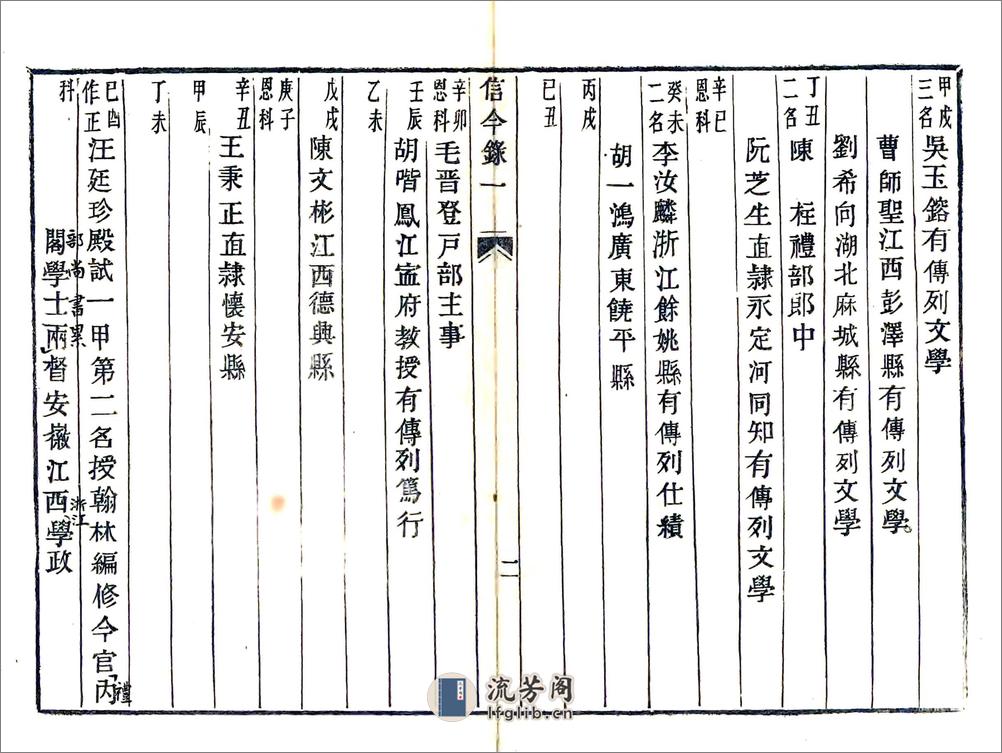 甲戌三名 吳玉鎔有傳列文學
曹師聖江西彭澤縣有傳列文學
劉希向湖北麻城縣有傳列文學
丁丑二名 陳 桎禮部郎中
阮芝生直隸永定河同知有傳列文學
辛巳恩科
癸未二名 李汝麟浙江餘姚縣有傳列仕績
胡一鴻廣東饒平縣
丙戌
己丑
信今錄一 二
辛卯恩科 毛晋登戶部主事
壬辰 胡喈鳳江寍府教授有傳列篤行
乙未
戊戌 陳文彬江西德興縣
庚子恩科
辛丑 王秉正直隸懷安縣
甲辰
丁未
己酉作正 汪廷珍殿試一甲第二名授翰林編修今官丙禮
科 部尚書署
閣學士兩督安徽江西浙江學政
流芳阁
lfglib.cn